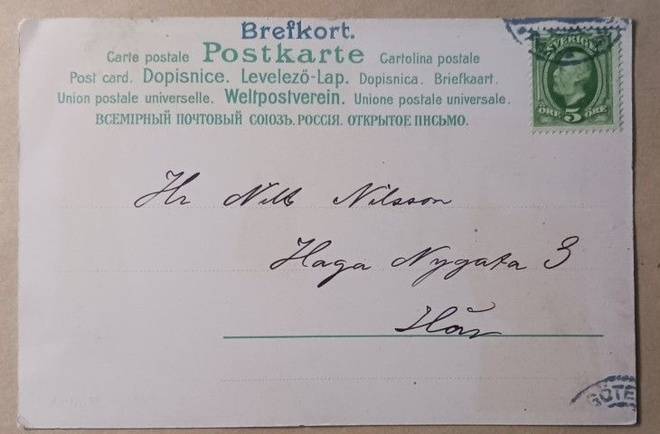 Brefkort.
Carte postale Postkarte Cartolina postale
Post card. Dopisnice. Levelező-Lap. Dopisnica. Briefkaart.
Union postale universelle. Weltpostverein. Unione postale universale.
ВСЕМІРНЫЙ ПОЧТОВЫЙ СОЮЗЪ. РОССІЯ. ОТКРЫТОЕ ПИСЬМО.
SVERIGE
ÖRE 5 ÖRE
Hr Nils Nilsson
Haga Nygata 3
Här
GÖTE